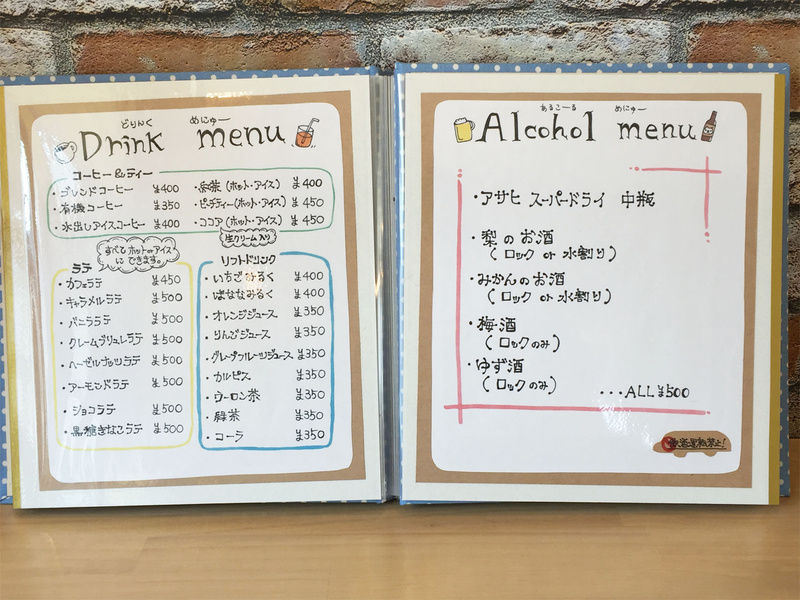 どりんく めにゅー
Drink menu
コーヒー&ティー
・ブレンドコーヒー ¥400
・有機コーヒー ¥350
・水出しアイスコーヒー ¥400
・紅茶(ホット・アイス) ¥400
・ピーチティー(ホット・アイス) ¥450
・ココア(ホット・アイス) ¥450
生クリーム入り
すべてホットorアイス
にできます。
ラテ
・カフェラテ ¥450
・キャラメルラテ ¥500
・バニララテ ¥500
・クレームブリュレラテ ¥500
・ヘーゼルナッツラテ ¥500
・アーモンドラテ ¥500
・ジョコラテ ¥500
・黒糖きなこラテ ¥500
ソフトドリンク
・いちごみるく ¥400
・ばななみるく ¥400
・オレンジジュース ¥350
・りんごジュース ¥350
・グレープフルーツジュース ¥350
・カルピス ¥350
・ウーロン茶 ¥350
・緑茶 ¥350
・コーラ ¥350
あるこーる めにゅー
Alcohol menu
・アサヒ スーパードライ 中瓶
・梨のお酒
(ロック or 水割り)
・みかんのお酒
(ロック or 水割り)
・梅酒
(ロックのみ)
・ゆず酒
(ロックのみ)
...ALL¥500
飲酒運転禁止!